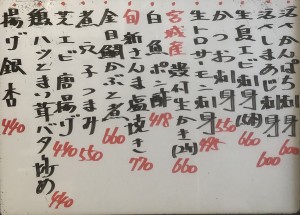 活〆かんぱち刺身 660
活〆しまあじ刺身 600
生島エビ刺身(5本) 600
かつお刺身 550
生トロサーモン刺身 495
宮城産 殻付生かき(2ヶ) 660
白魚ポン酢 418
旬 新さんま塩焼き 770
金目鯛かぶと煮 660
煮穴子つまみ 550
芝エビ唐揚げ 440
魚ハンとまい茸バター炒め 440
揚げ銀杏 440